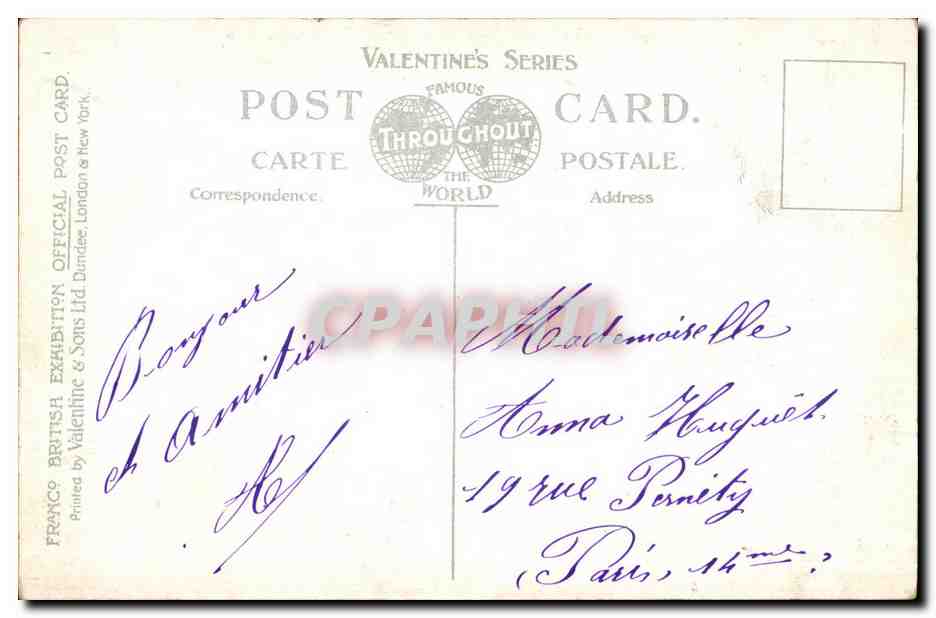 VALENTINE'S SERIES
POST CARD.
FAMOUS
THROUGHOUT
THE
WORLD
CARTE POSTALE.
Correspondence. Address
FRANCO BRITISH EXHIBITION OFFICIAL POST CARD.
Printed by Valentine & Sons Ltd. Dundee, London & New York.
CPAPHIL
Bonjour
et Amitiés
H
Mademoiselle
Anna Huguet.
19 rue Pernéty
(Paris, 14me)